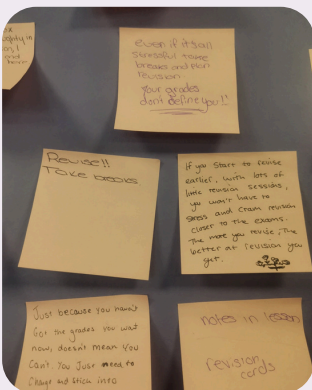 even if its all
stressful to take
breaks and plan
revision
your grades
don't define you!!
Revise!!
Take breaks
if you start to revise
earlier, with lots of
little revision sessions,
you won't have to
stress and cram revision
closer to the exams.
The more you revise, The
better at revision you
get.
Just because you haven't
Got the grades you want
now, doesn't mean you
Can't. You Just need to
Change and stick into
notes in lesson
revision
cards